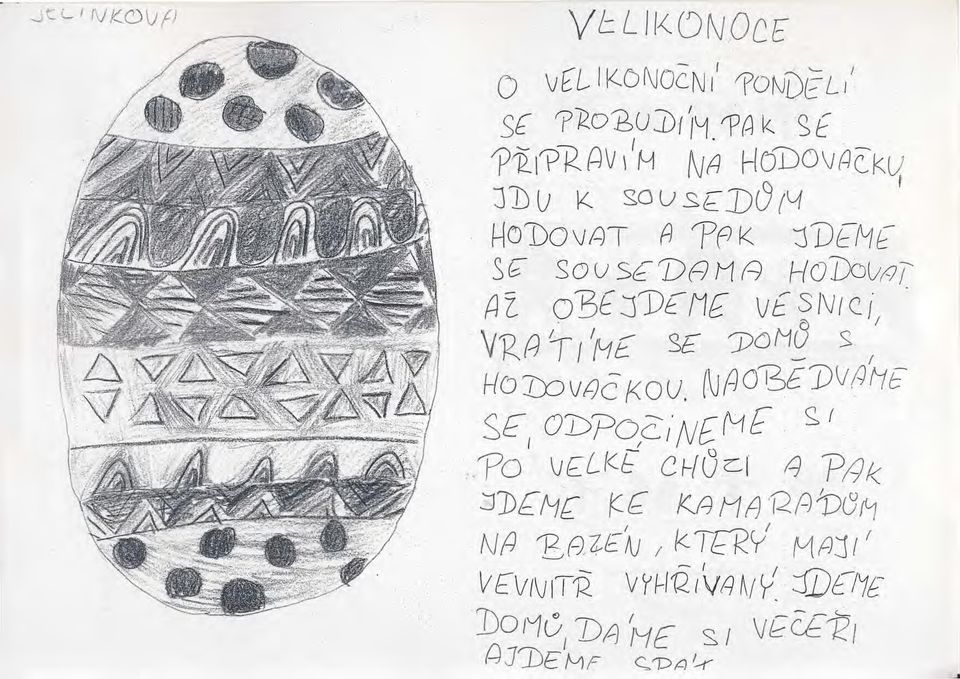 JELINKOVA
VELIKONOCE
O VELIKONOČNÍ PONDĚLÍ
SE PROBUDÍM. PAK SE
PŘIPRAVÍM NA HODOVAČKU,
JDU K SOUSEDŮM
HODOVAT A PAK JDEME
SE SOUSEDAMA HODOVAT.
AŽ OBEJDEME VESNICI,
VRÁTÍME SE DOMŮ S
HODOVAČKOU. NAOBĚDVÁME
SE, ODPOČINEME SI
PO VELKÉ CHŮZI A PAK
JDEME KE KAMARÁDŮM
NA BAZÉN, KTERÝ MAJÍ
VEVNITŘ VYHŘÍVANÝ. JDEME
DOMŮ, DÁME SI VEČEŘI
A JDEME SPÁT